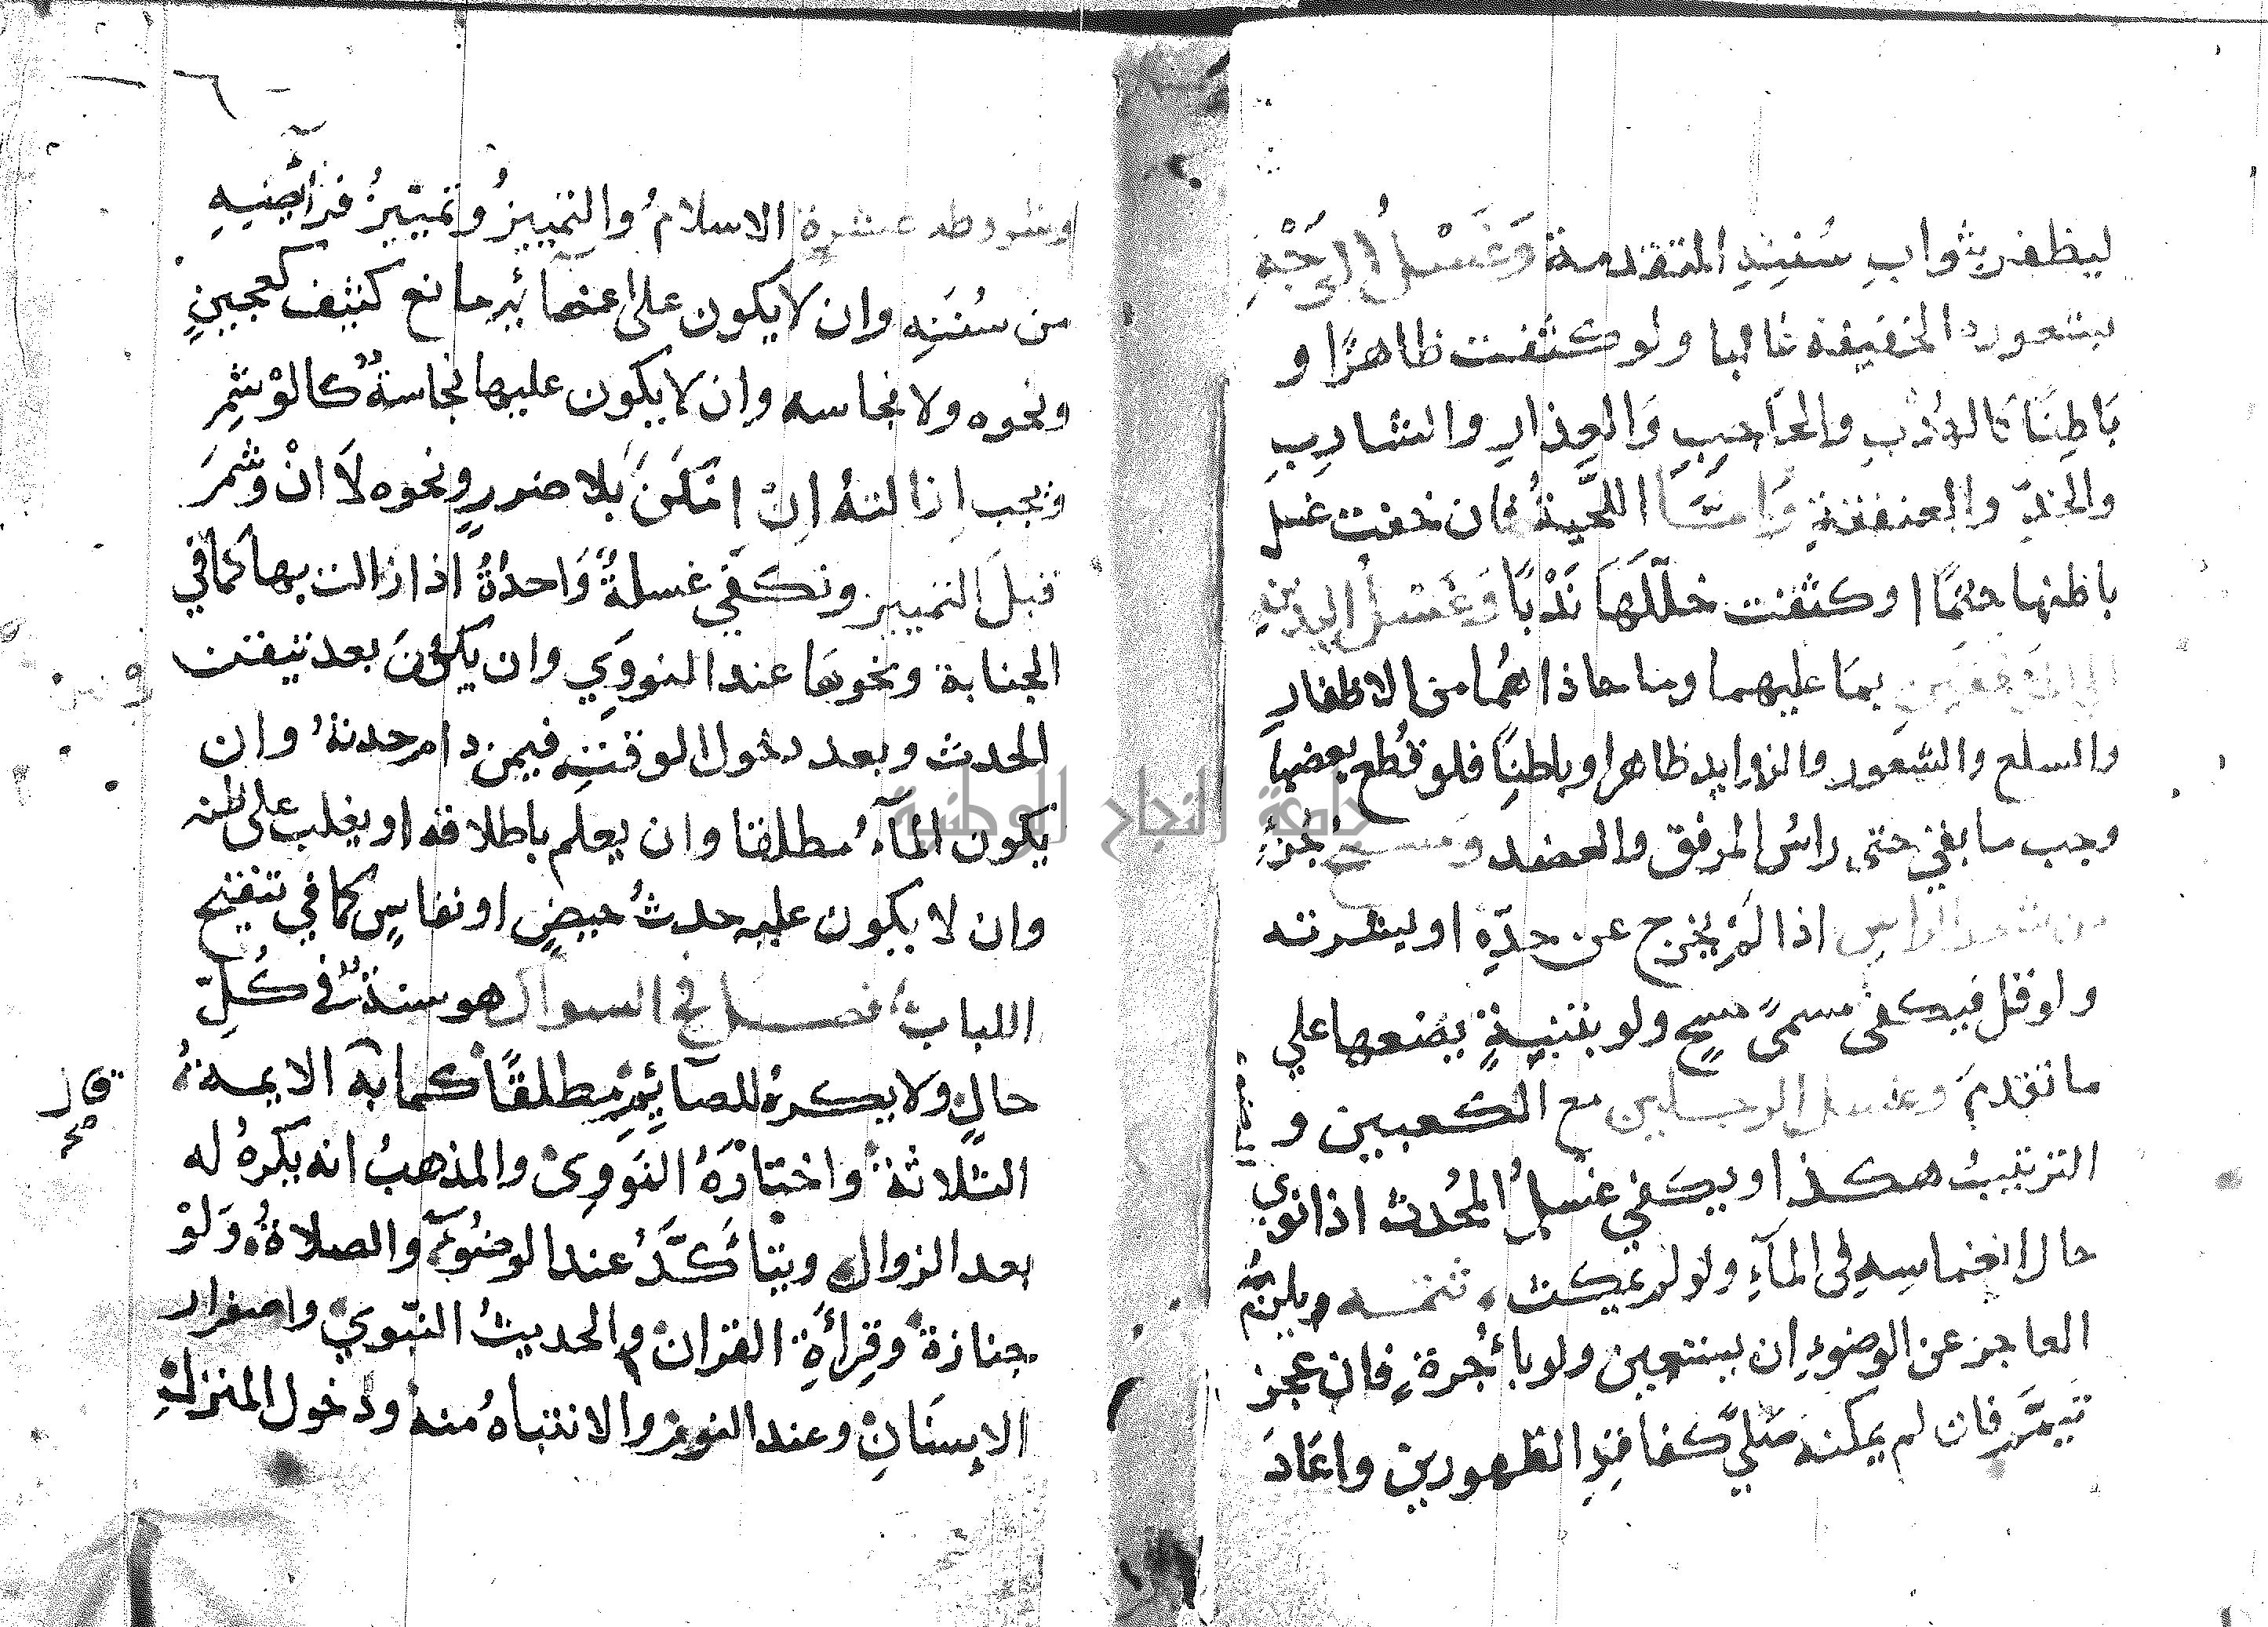 ليظفر بثواب سُننِهِ المتقدمة وَغَسْلُ الوَجْهِ
بشعوره الخفيفة غالبا ولو كثفت ظاهرًا و
بَاطِنًا كالهُدْبِ والحَاجِبِ وَالعِذارِ والشارِبِ
والخدِّ والعنفقةِ وَامَّا اللحيةُ فان خفت غسل
باطنها حتمًا او كثفت خللَهَا نَدْبًا وَغَسْلُ اليدَينِ
الي المرفقينِ بمَا عليهما وما حاذاهُمَا من الاظفارِ
والسلع والشعور والزوايد ظاهرا وباطنًا فلو قُطع بعضها
وجب ما بقي حتي راسُ المرفق والعضد ومسحُ جُزءٍ
من شعر الراسِ اذا لَمْ يخرج عن حدِّهِ او بشرته
ولو قل فيكفي مسمىً مسحٍ ولو بتنيةٍ يضعها علي
ما تقدمَ وغسل الرجلين مع الكعبين و
الترتيبُ هكذا ويكفي غسلُ المُحْدث اذا نوي
حال انغماسِهِ في المآءِ ولو لم يمكث ويلزمُ
العاجز عن الوضوءِ ان يستعين ولو بأُجرةٍ فان عجز
تَيمَّمَ فان لم يمكنه صَلَّي كفاقِدِ الطهورين واعَادَ
٦
وشروطه عشرة الاسلامُ والتمييزُ وتمييزُ فرآئضِهِ
من سُننِه وان لا يكون على اعضآئه مانع كثيف كعجينٍ
ونحوه ولا نجاسه وان لا يكون عليها نجاسةٌ كالوْشمِ
ويجب ازالتهُ اِنْ امْكَنَ بَلا ضررٍ ونحوه لَا انْ وُشمَ
قبلَ التمييز وتكفي غسلةٌ وَاحدَةٌ اذا زالت بها كما في
الجنابة ونحوهَا عند النووَي وان يكُونَ بعد تيقن
الحدث وبعد دخول الوقتِ فيمن دام حدثهُ وان
يكون المآءُ مطلقا وان يعلم باطلاقه او يغلب على ظنه
وان لا يكون عليه حدثُ حيضٍ او نفاسٍ كما في تنقيح
اللباب فصل في السواك هو سنةٌ في كُلِّ
حالٍ ولا يكرهُ للصآئِمِ مطلقًا كما به الايمةُ
الثلاثة واختَارَهُ النَووِي والمذهبُ انه يكرهُ له
بعد الزوال ويتأكَّدُ عند الوضُوءِ والصلاةِ وَلوْ
جنازة وقِراءَةِ القران والحديثُ النّبَوي واصفرار
الاِسنَانِ وعند النوم والانتباهُ منه ودخول المنزلِ
قال
صح
جامعة النجاح الوطنية